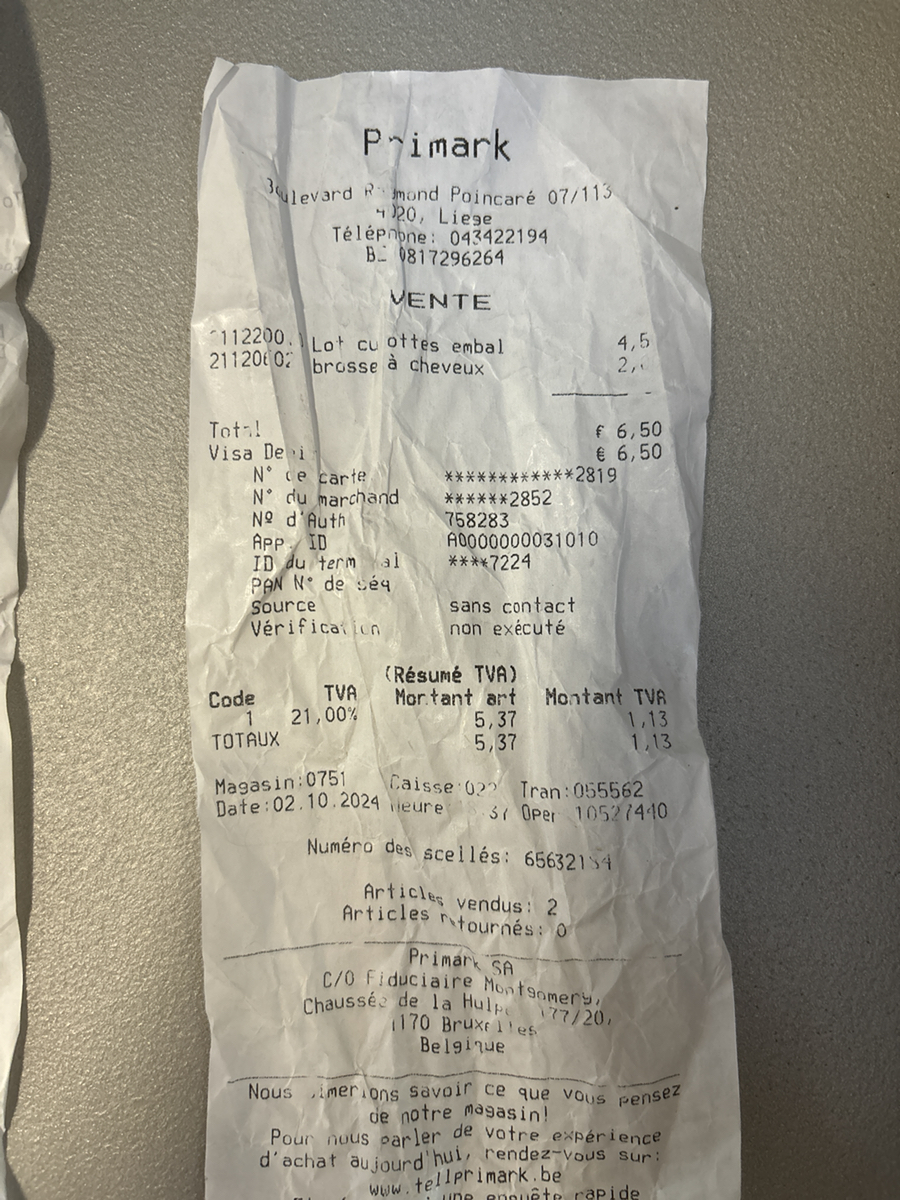 Primark
Boulevard Raymond Poincaré 07/113
4020, Liege
Téléphone: 043422194
BE 0817296264
VENTE
Lot culottes embal 4,5
brosse à cheveux 2,
Total € 6,50
Visa Debit € 6,50
N° de carte ************2819
N° du marchand ******2852
Nº d'Auth 758283
App. ID A0000000031010
ID du terminal ****7224
PAN N° de séq
Source sans contact
Vérification non exécuté
(Résumé TVA)
Code TVA Montant art Montant TVA
1 21,00% 5,37 1,13
TOTAUX 5,37 1,13
Magasin:0751 Caisse: Tran:055562
Date:02.10.2024 Heure Oper 10527440
Numéro des scellés:
Articles vendus: 2
Articles retournés: 0
Primark SA
C/O Fiduciaire Montgomery,
Chaussée de la Hulpe 177/20,
1170 Bruxelles
Belgique
Nous aimerions savoir ce que vous pensez
de notre magasin!
Pour nous parler de votre expérience
d'achat aujourd'hui, rendez-vous sur:
www.tellprimark.be
une enquête rapide